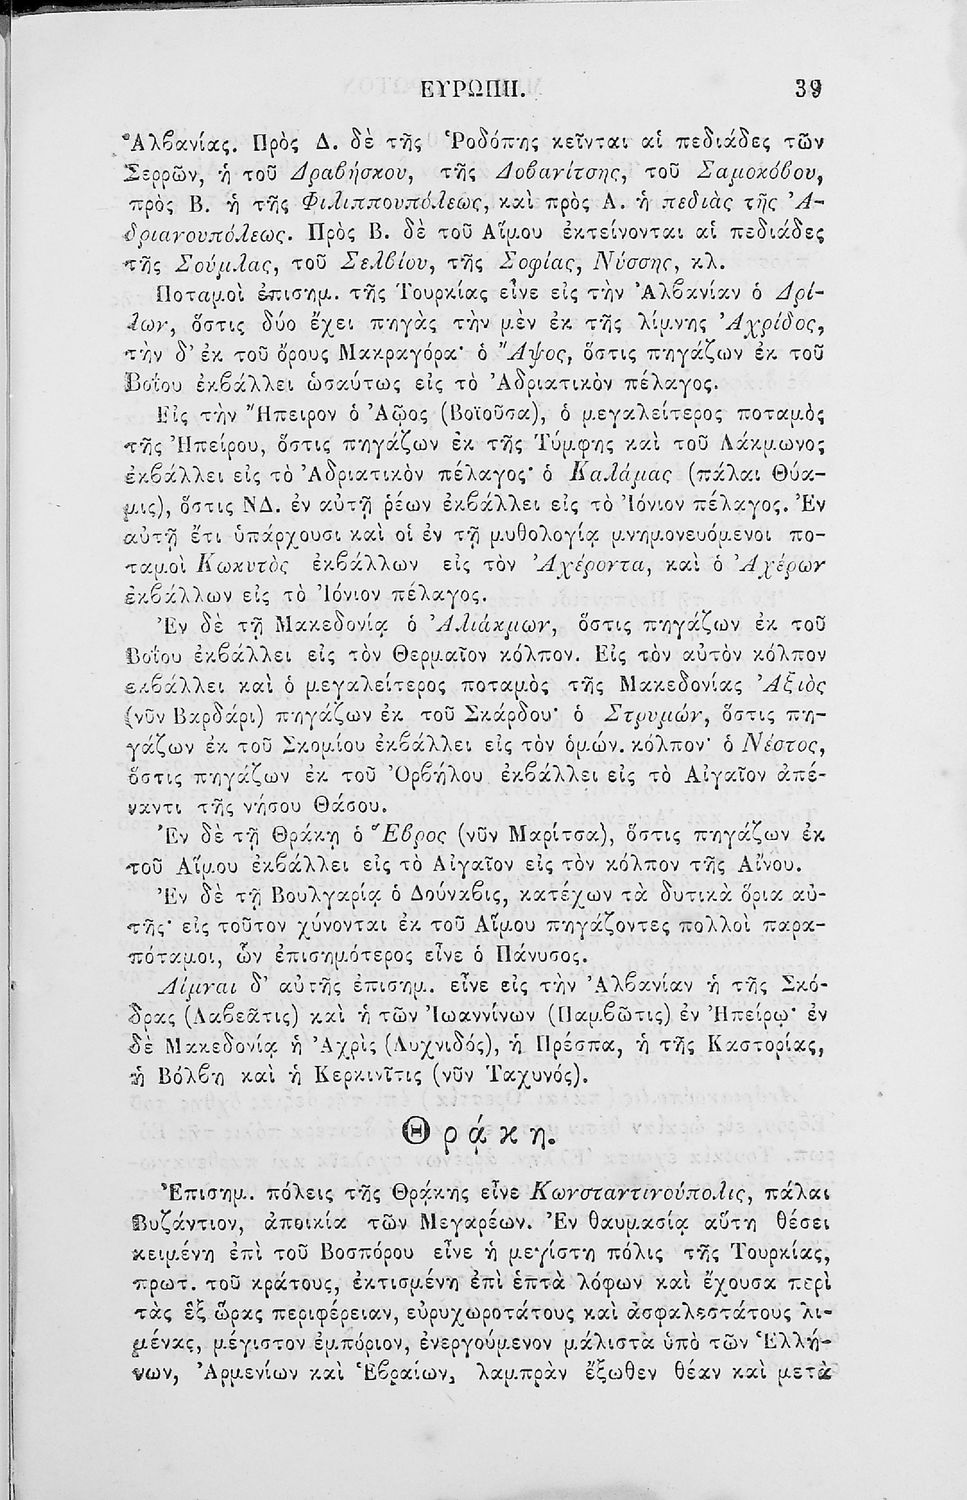 ΕΥΡΩΠΗ. 39
Ἀλβανίας. Πρὸς Δ. δὲ τῆς Ῥοδόπης κεῖνται αἱ πεδιάδες τῶν
Σερρῶν, ἡ τοῦ Δραβήσκου, τῆς Δοβανίτσης, τοῦ Σαμοκόβου,
πρὸς Β. ἡ τῆς Φιλιππουπόλεως, καὶ πρὸς Α. ἡ πεδιὰς τῆς Ἀ-
δριανουπόλεως. Πρὸς Β. δὲ τοῦ Αἵμου ἐκτείνονται αἱ πεδιάδες
τῆς Σούμλας, τοῦ Σελβίου, τῆς Σοφίας, Νύσσης, κλ.
Ποταμοὶ ἐπισημ. τῆς Τουρκίας εἶνε εἰς τὴν Ἀλβανίαν ὁ Δρί-
λων, ὅστις δύο ἔχει πηγὰς τὴν μὲν ἐκ τῆς λίμνης Ἀχρίδος,
τὴν δ’ ἐκ τοῦ ὄρους Μακραγόρα· ὁ Ἄψος, ὅστις πηγάζων ἐκ τοῦ
Βοΐου ἐκβάλλει ὡσαύτως εἰς τὸ Ἀδριατικὸν πέλαγος.
Εἰς τὴν Ἤπειρον ὁ Ἀῷος (Βοϊοῦσα), ὁ μεγαλείτερος ποταμὸς
τῆς Ἠπείρου, ὅστις πηγάζων ἐκ τῆς Τύμφης καὶ τοῦ Λάκμωνος
ἐκβάλλει εἰς τὸ Ἀδριατικὸν πέλαγος· ὁ Καλάμας (πάλαι Θύα-
μις), ὅστις ΝΔ. ἐν αὐτῇ ῥέων ἐκβάλλει εἰς τὸ Ἰόνιον πέλαγος. Ἐν
αὐτῇ ἔτι ὑπάρχουσι καὶ οἱ ἐν τῇ μυθολογίᾳ μνημονευόμενοι πο-
ταμοὶ Κωκυτὸς ἐκβάλλων εἰς τὸν Ἀχέροντα, καὶ ὁ Ἀχέρων
ἐκβάλλων εἰς τὸ Ἰόνιον πέλαγος.
Ἐν δὲ τῇ Μακεδονίᾳ ὁ Ἀλιάκμων, ὅστις πηγάζων ἐκ τοῦ
Βοΐου ἐκβάλλει εἰς τὸν Θερμαῖον κόλπον. Εἰς τὸν αὐτὸν κόλπον
εκβάλλει καὶ ὁ μεγαλείτερος ποταμὸς τῆς Μακεδονίας Ἀξιὸς
(νῦν Βαρδάρι) πηγάζων ἐκ τοῦ Σκάρδου· ὁ Στρυμών, ὅστις πη-
γάζων ἐκ τοῦ Σκομίου ἐκβάλλει εἰς τὸν ὁμών. κόλπον· ὁ Νέστος,
ὅστις πηγάζων ἐκ τοῦ Ὀρβήλου ἐκβάλλει εἰς τὸ Αἰγαῖον ἀπέ-
ναντι τῆς νήσου Θάσου.
Ἐν δὲ τῇ Θράκῃ ὁ Ἕβρος (νῦν Μαρίτσα), ὅστις πηγάζων ἐκ
τοῦ Αἵμου ἐκβάλλει εἰς τὸ Αἰγαῖον εἰς τὸν κόλπον τῆς Αἴνου.
Ἐν δὲ τῇ Βουλγαρίᾳ ὁ Δούναβις, κατέχων τὰ δυτικὰ ὅρια αὐ-
τῆς· εἰς τοῦτον χύνονται ἐκ τοῦ Αἵμου πηγάζοντες πολλοὶ παρα-
πόταμοι, ὧν ἐπισημότερος εἶνε ὁ Πάνυσος.
Λίμναι δ’ αὐτῆς ἐπισημ. εἶνε εἰς τὴν Ἀλβανίαν ἡ τῆς Σκό-
δρας (Λαβεᾶτις) καὶ ἡ τῶν Ἰωαννίνων (Παμβῶτις) ἐν Ἠπείρῳ· ἐν
δὲ Μακεδονίᾳ ἡ Ἀχρὶς (Λυχνιδός), ἡ Πρέσπα, ἡ τῆς Καστορίας,
ἡ Βόλβη καὶ ἡ Κερκινῖτις (νῦν Ταχυνός).
Θρᾴκη.
Ἐπισημ. πόλεις τῆς Θρᾴκης εἶνε Κωνσταντινούπολις, πάλαι
Βυζάντιον, ἀποικία τῶν Μεγαρέων. Ἐν θαυμασίᾳ αὕτη θέσει
κειμένη ἐπὶ τοῦ Βοσπόρου εἶνε ἡ μεγίστη πόλις τῆς Τουρκίας,
πρωτ. τοῦ κράτους, ἐκτισμένη ἐπὶ ἑπτὰ λόφων καὶ ἔχουσα περὶ
τὰς ἓξ ὥρας περιφέρειαν, εὐρυχωροτάτους καὶ ἀσφαλεστάτους λι-
μένας, μέγιστον ἐμπόριον, ἐνεργούμενον μάλιστα ὑπὸ τῶν Ἑλλή-
νων, Ἀρμενίων καὶ Ἑβραίων, λαμπρὰν ἔξωθεν θέαν καὶ μετὰ